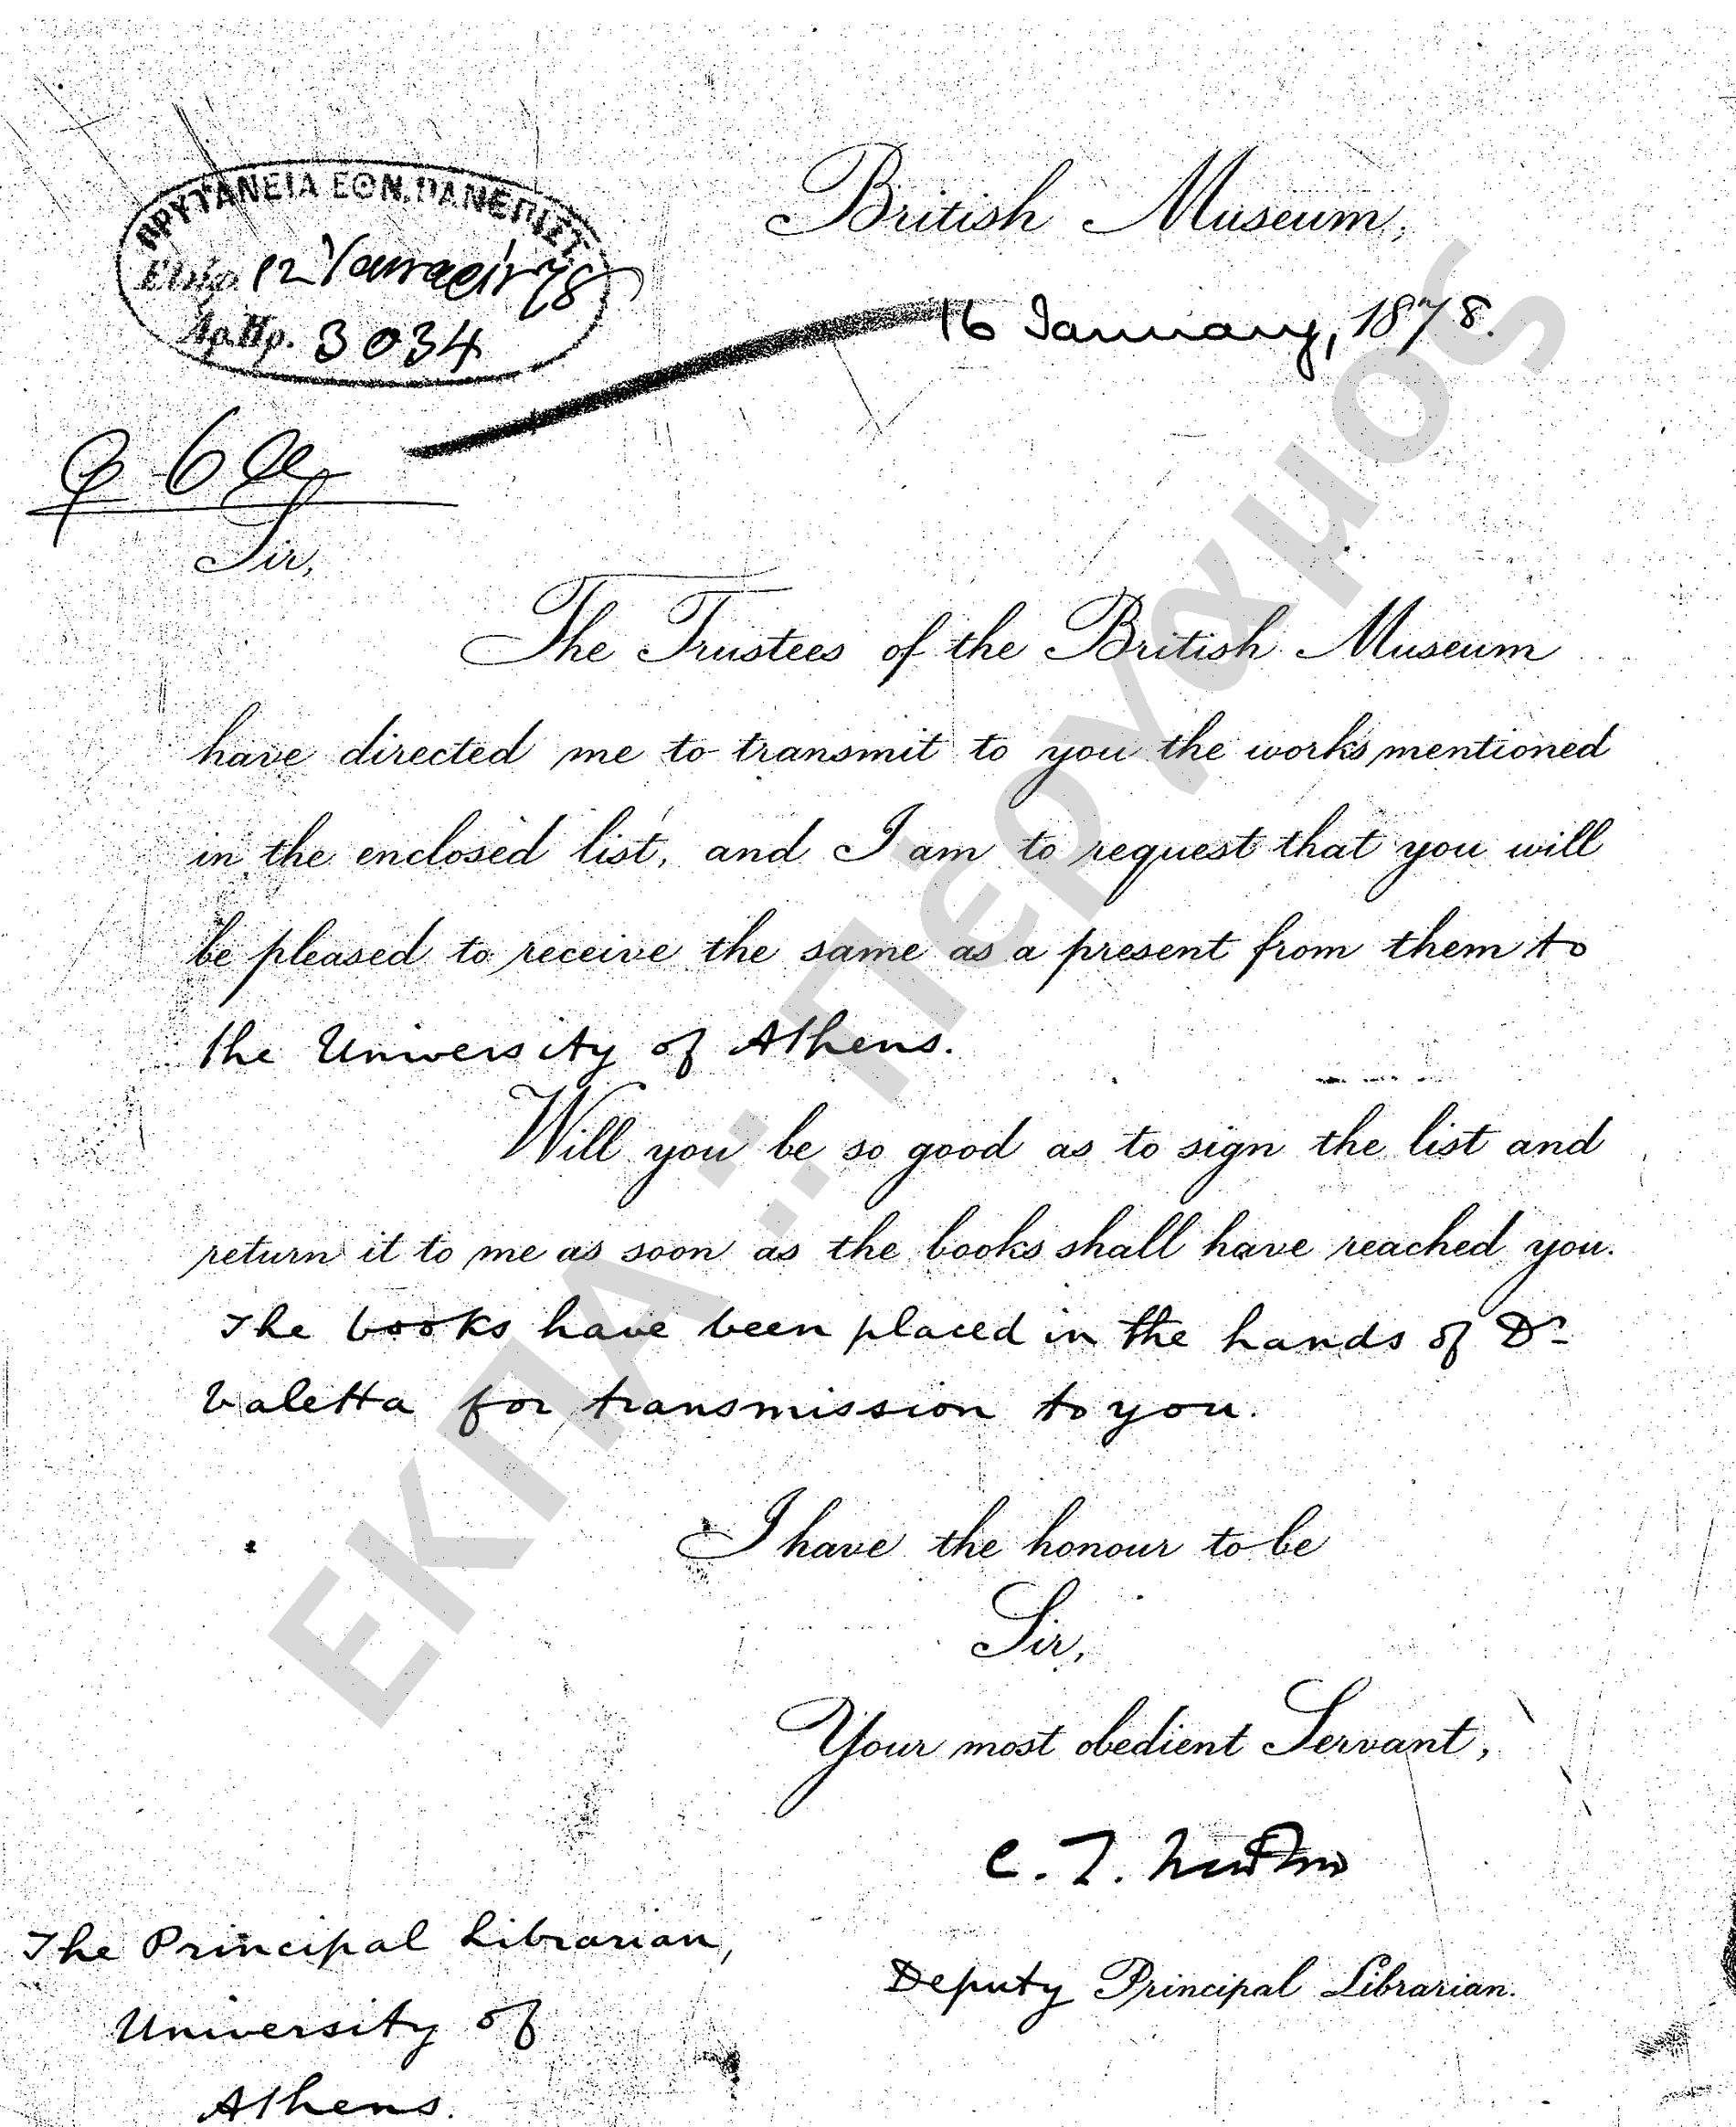 ΠΡΥΤΑΝΕΙΑ ΕΘΝ. ΠΑΝΕΠΙΣΤ
12 78
Αρ. Πρ. 3034
British Museum,
16 January, 1878.
Sir,
The Trustees of the British Museum
have directed me to transmit to you the works mentioned
in the enclosed list, and I am to request that you will
be pleased to receive the same as a present from them to
the University of Athens.
Will you be so good as to sign the list and
return it to me as soon as the books shall have reached you.
The books have been placed in the hands of Dr
Valetta for transmission to you.
I have the honour to be
Sir,
Your most obedient Servant,
C. T. Newton
Deputy Principal Librarian.
The Principal Librarian,
University of
Athens.
ΕΚΠΑ :: Πέργαμος